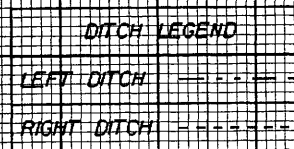 DITCH LEGEND
LEFT DITCH
RIGHT DITCH